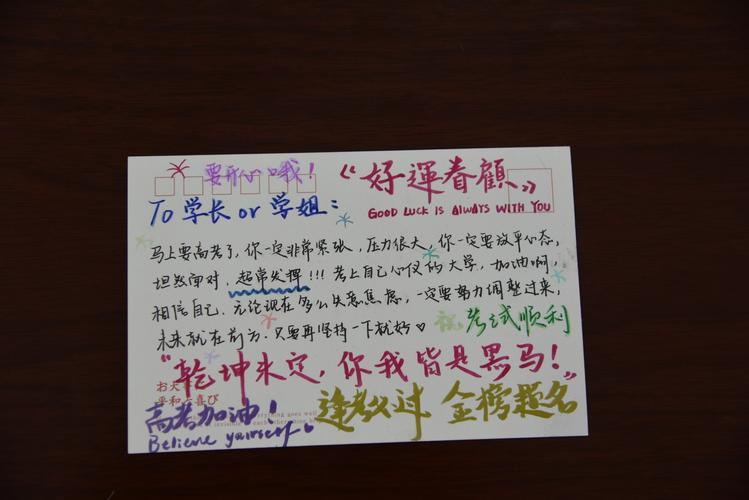 要开心哦！
《好運眷顧》
GOOD LUCK IS ALWAYS WITH YOU
To 学长 or 学姐：
马上要高考了，你一定非常紧张，压力很大，你一定要放平心态，
坦然面对，超常发挥!!! 考上自己心仪的大学，加油啊，
相信自己．无论现在多么失意焦虑，一定要努力调整过来，
未来就在前方．只要再坚持一下就好♡
祝考试顺利
“乾坤未定，你我皆是黑马！”
平和と喜び
高考加油！
逢考必过 金榜题名
Believe yourself